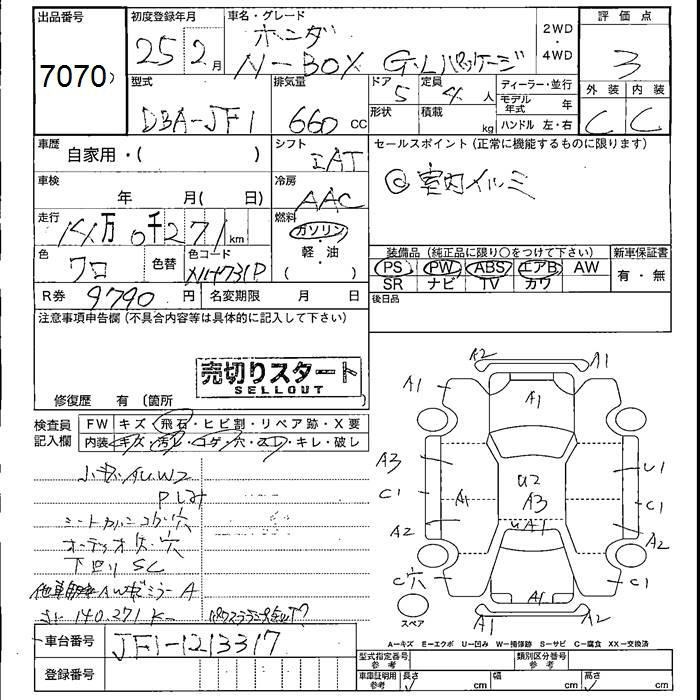 出品番号 初度登録年月 車名・グレード 評価点
7070
25年2月
ホンダ
N-BOX G・Lパッケージ
2WD・4WD
3
型式 排気量 ドア 定員 ディーラー・並行 外装 内装
DBA-JF1 660cc 5 4人
形状 積載 kg
モデル年式 年
ハンドル 左・右
C C
車歴 自家用・( ) シフト セールスポイント(正常に機能するものに限ります)
IAT
◎室内イルミ
車検 年 月( 日) 冷房
AAC
走行 14万0千271km 燃料 ガソリン
軽・油
( )
色 クロ 色替 色コード NH731P
装備品(純正品に限り○をつけて下さい) 新車保証書
PS PW ABS エアB AW 有・無
SR ナビ TV カワ
R券 9790円 名変期限 月 日 後日品
注意事項申告欄(不具合内容等は具体的に記入して下さい)
売切りスタート
SELLOUT
修復歴 有(箇所 )
検査員記入欄 FW キズ・飛石・ヒビ割・リペア跡・X要
内装 キズ・汚レ・コゲ・穴・スレ・キレ・破レ
小キズAUW2
穴
オーディオ 穴
下回りSC
ミラーA
140,271K
A2 A1
A1 A1
A3 U1
C1 A1 U2 A3 C1
A2 UA1 A2
C穴 A1 C1
A1 A2
スペア
A-キズ E-エクボ U-凹み W-補修跡 S-サビ C-腐食 XX-交換済
車台番号 JF1-1213317
登録番号
型式指定番号 参考 類別区分番号 参考
車庫証明用 参考 長さ cm 幅 cm 高さ cm